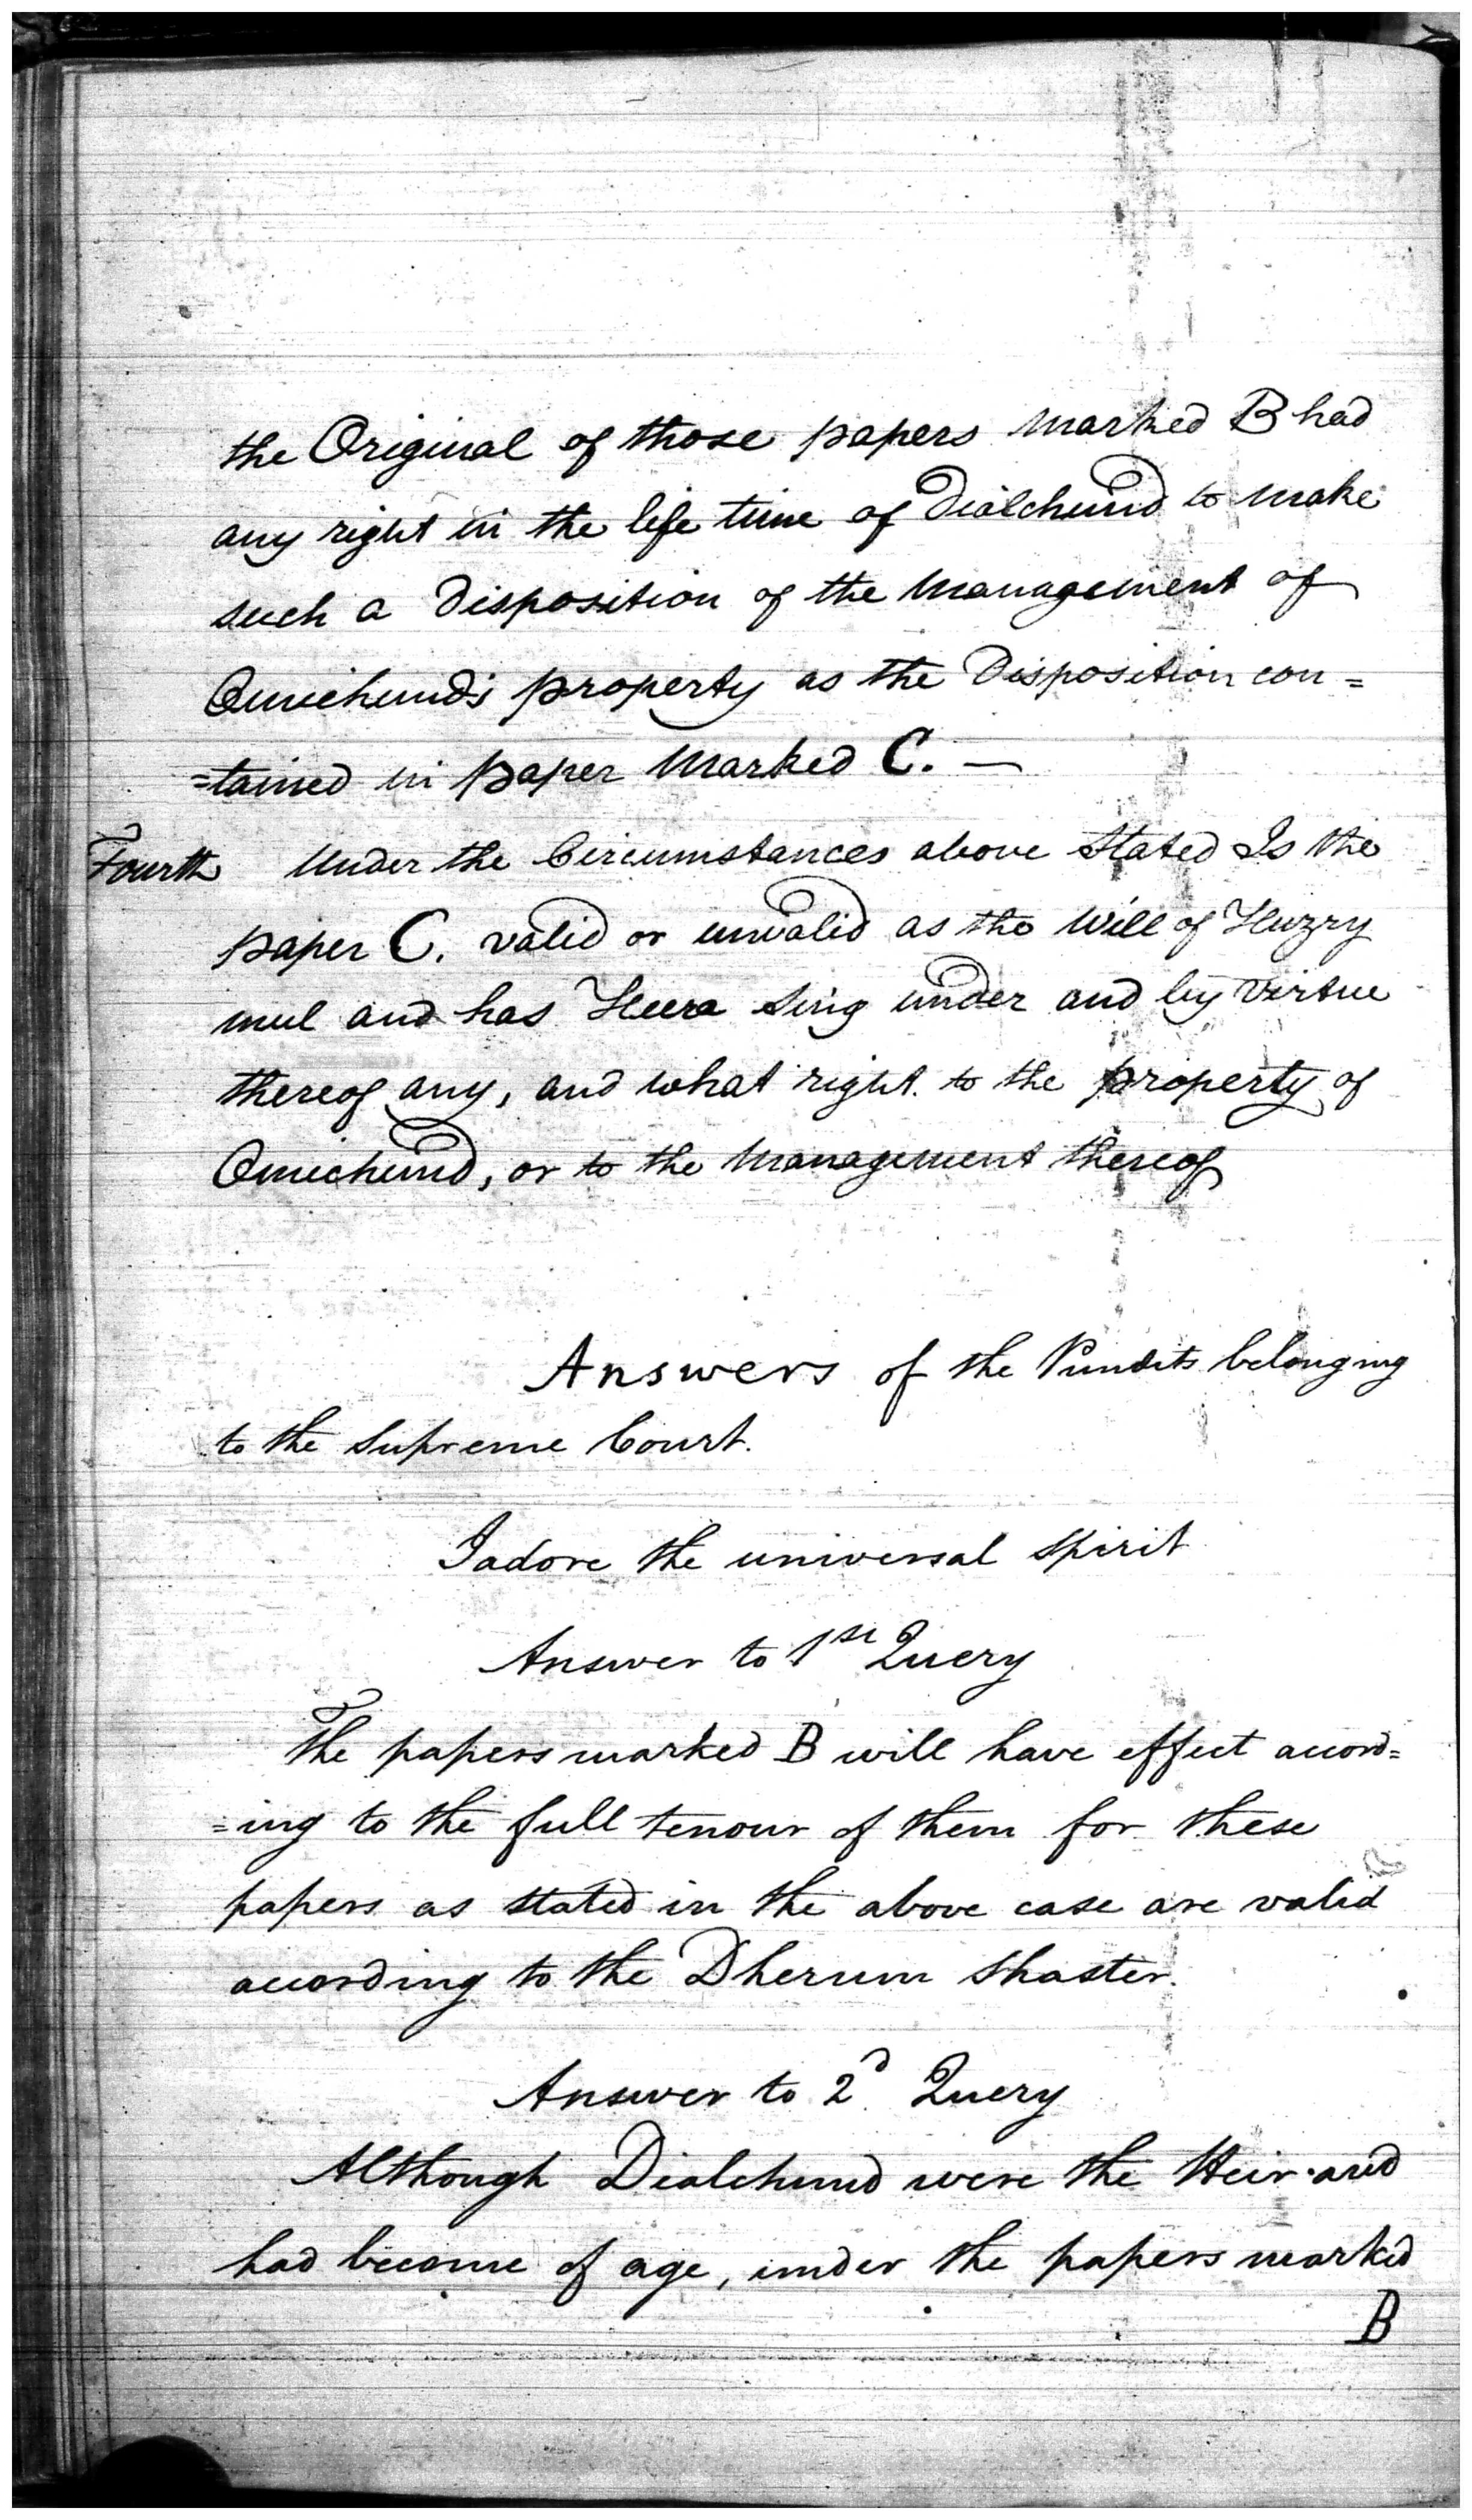 the Original of those papers marked B had
any right in the life time of Dialchund to make
such a Disposition of the Management of
Omichund's property as the Disposition con=
=tained in paper Marked C. —
Fourth Under the Circumstances above stated Is the
paper C. valid or unvalid as the Will of Huzry
mul and has Heera Sing under and by virtue
thereof any, and what right to the property of
Omichund, or to the Management thereof
Answers of the Pundits belonging
to the Supreme Court.
I adore the universal spirit
Answer to 1st Query
The papers marked B will have effect accord=
=ing to the full tenour of them for these
papers as stated in the above case are valid
according to the Dherum Shaster.
Answer to 2d Query
Although Dialchund were the Heir and
had become of age, under the papers marked
B